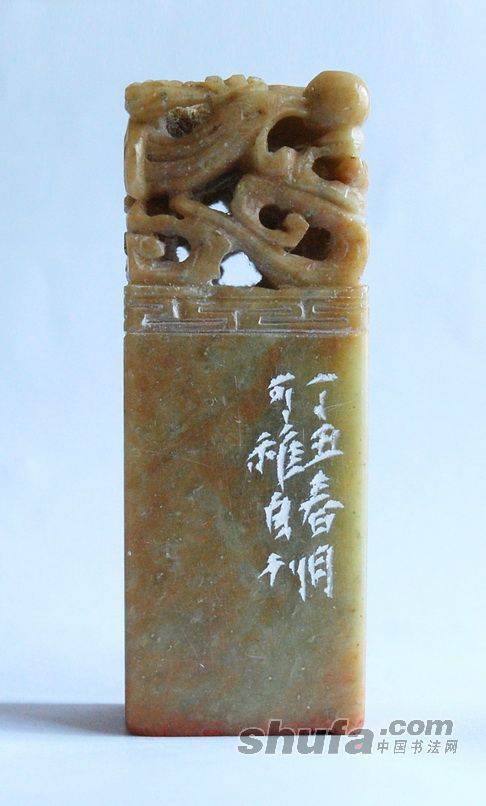 丁丑春月
可稚自刊
shufa.com
中国书法网